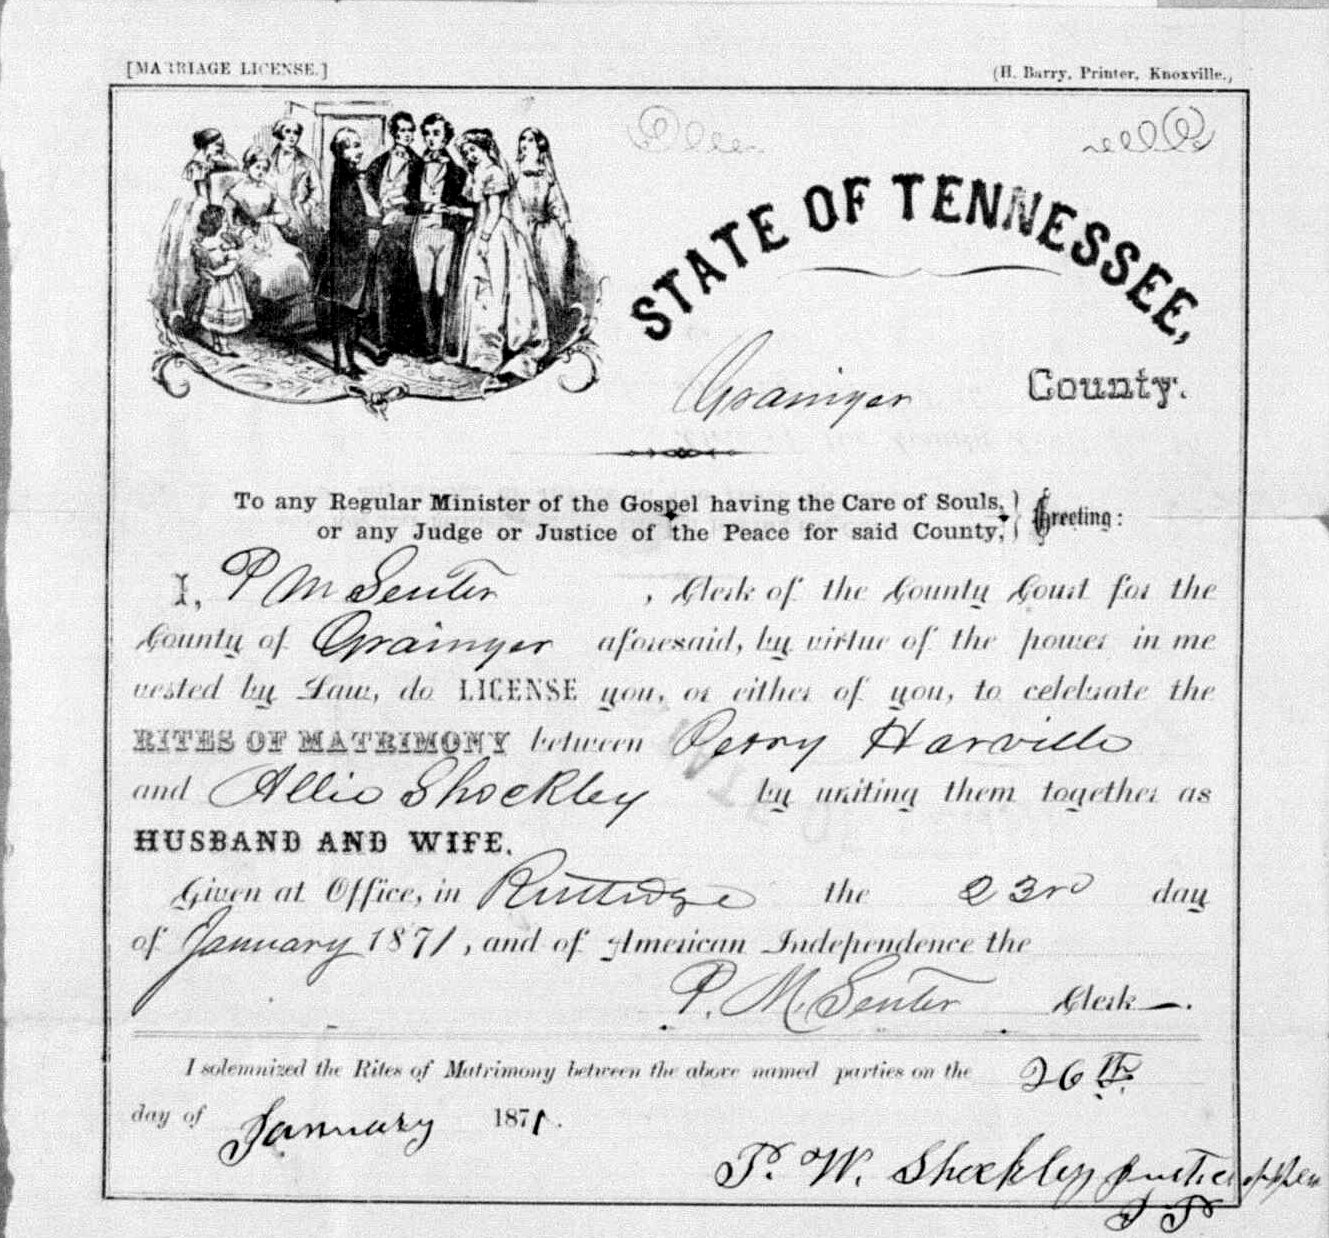 [MARRIAGE LICENSE.]
(H. Barry, Printer, Knoxville.,
STATE OF TENNESSEE,
Grainger County.
To any Regular Minister of the Gospel having the Care of Souls,
or any Judge or Justice of the Peace for said County,
Greeting:
I, P M Senter , Clerk of the County Court for the
County of Grainger aforesaid, by virtue of the power in me
vested by Law, do LICENSE you, or either of you, to celebrate the
RITES OF MATRIMONY between Perry Harville
and Allie Shockley by uniting them together as
HUSBAND AND WIFE.
Given at Office, in Rutledge the 23rd day
of January 1871, and of American Independence the
P. M. Senter Clerk.
I solemnized the Rites of Matrimony between the above named parties on the 26th
day of January 1871.
P. W. Shockley Justice of
J P